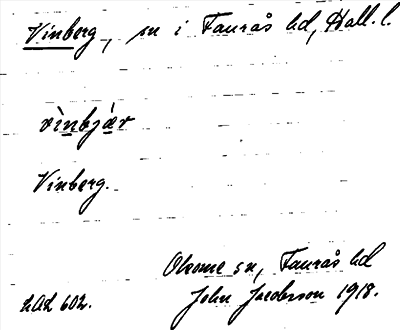 Vinberg, sn i Faurås hd, Hall. l.
vìnbjár
Vinberg.
Okome sn, Faurås hd
LAL 602. John Jacobsson 1918.